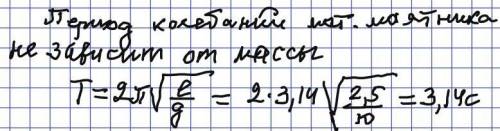 Период колебаний мат. маятника
не зависит от массы
T = 2π√(ℓ/g) = 2·3,14√(2,5/10) = 3,14с